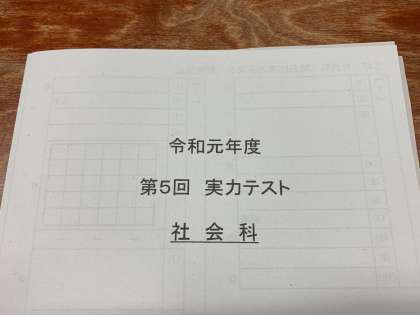 令和元年度
第5回 実力テスト
社 会 科